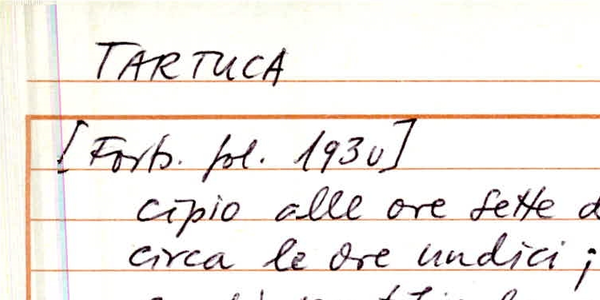 TARTUCA
[Forb. fol. 193v]
cipio alle ore sette d
circa le ore undici;